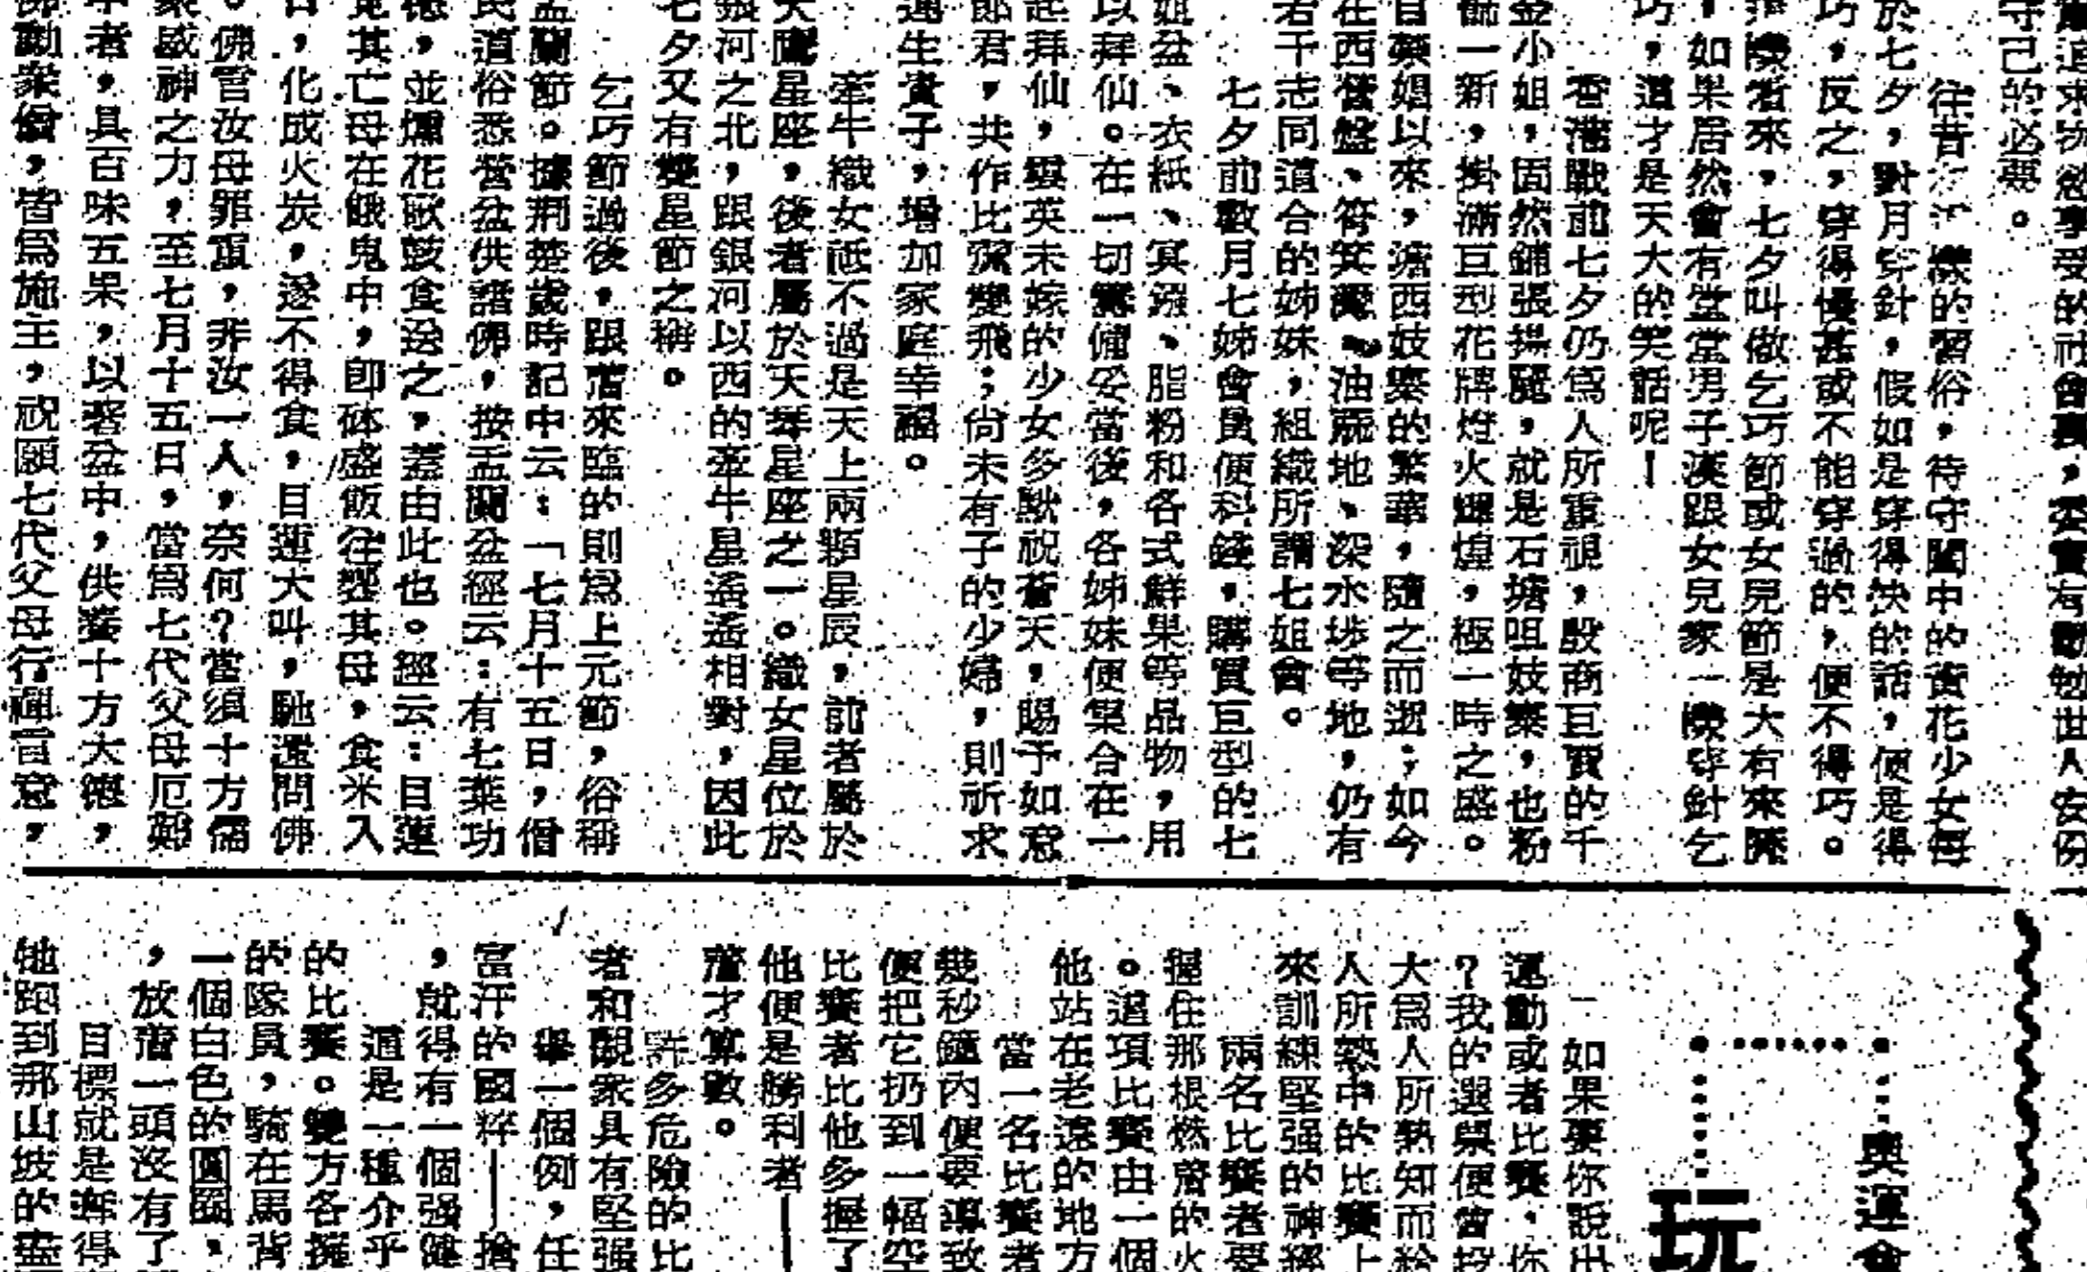 守己的必要。
往昔
機的習俗，待守閨中的黃花少女每
於七夕，對月穿針，假如是穿得快的話，便是得
巧，反之，穿得慢甚或不能穿過的，便不得巧。
者來，七夕叫做乞巧節或女兒節是大有來
，如果居然會有堂堂男子漢跟女兒家一樣穿針乞
巧，這才是天大的笑話呢！
香港戰前七夕仍為人所重視，殷商巨賈的千
金小姐，固然鋪張揚厲，就是石塘咀妓寨，也粉
飾一新，掛滿巨型花牌燈火輝煌，極一時之盛。
自禁娼以來，塘西妓寨的繁華，隨之而逝；如今
在西營盤、筲箕灣、油蔴地、深水埗等地，仍有
若干志同道合的姊妹，組織所謂七姐會。
七夕前數月七姊會員便科錢，購買巨型的七
姐盆、衣紙、冥鏹、脂粉和各式鮮果等品物，用
以拜仙。在一切籌備妥當後，各姊妹便集合在一
起拜仙，雲英未嫁的少女多默祝蒼天，賜予如意
郎君，共作比翼雙飛；尚未有子的少婦，則祈求
連生貴子，增加家庭幸福。
牽牛織女祇不過是天上兩顆星辰，前者屬於
天鷹星座，後者屬於天琴星座之一。織女星位於
銀河之北，跟銀河以西的牽牛星遙遙相對，因此
七夕又有雙星節之稱。
乞巧節過後，跟着來臨的則為上元節，俗稱
盂蘭節。據荆楚歲時記中云：「七月十五日，僧
民道俗悉營盆供諸佛，按盂蘭盆經云：有七葉功
德，並幡花歌鼓食送之，蓋由此也。經云：目蓮
見其亡母在餓鬼中，即砵盛飯往饗其母，食米入
口，化成火炭，遂不得食，目蓮大叫，馳還問佛
。佛言汝母罪重，非汝一人，奈何？當須十方僧
眾威神之力，至七月十五日，當為七代父母厄難
中者，具百味五果，以著盆中，供養十方大德，
佛勅眾僧，皆為施主，祝願七代父母行禪定意，
奧運會
玩
如果要你說出
運動或者比賽，你
？我的選票便會投
大為人所熟知而給
人所熱中的比賽上
來訓練堅强的神經
兩名比賽者要
握住那根燃着的火
。這項比賽由一個
他站在老遠的地方
當一名比賽者
幾秒鐘內便要導致
便把它扔到一幅空
比賽者比他多握了
他便是勝利者——
着才算數。
許多危險的比
者和觀眾具有堅强
舉一個例，任
富汗的國粹——搶
，就得有一個强健
這是一種介乎
的比賽。雙方各擁
的隊員，騎在馬背
一個白色的圓圈，
，放着一頭沒有了
目標就是奪得
牠跑到那山坡的